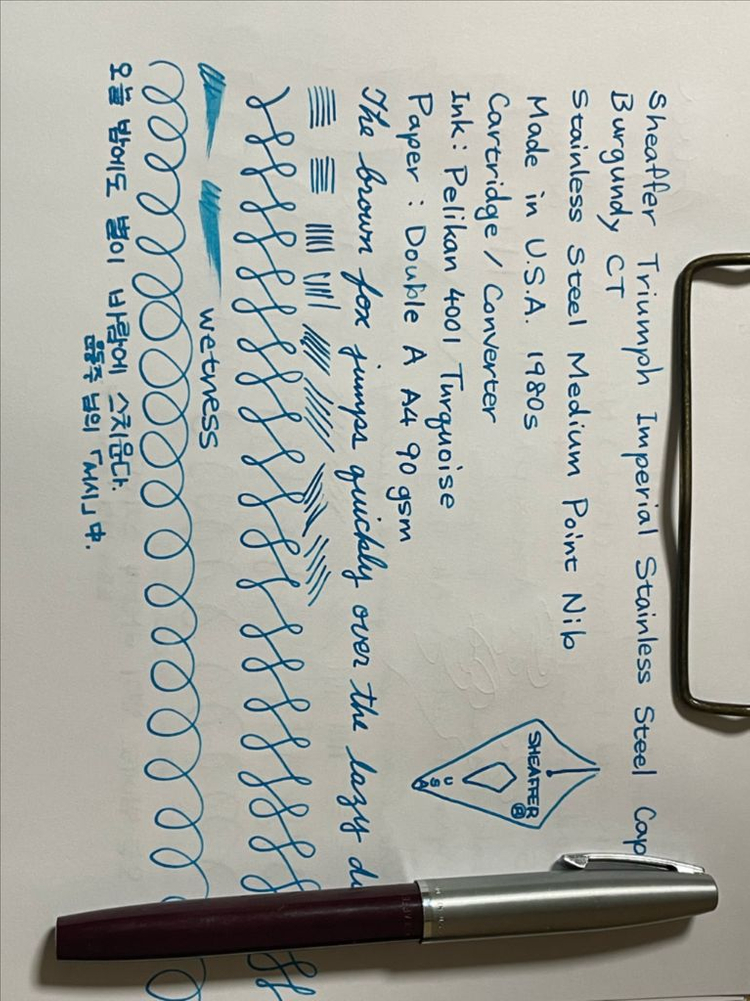 Sheaffer Triumph Imperial Stainless Steel Cap
Burgundy CT
Stainless Steel Medium Point Nib
Made in U.S.A. 1980s
Cartridge / Converter
Ink : Pelikan 4001 Turquoise
Paper : Double A A4 90 gsm
SHEAFFER ®
USA
The brown fox jumps quickly over the lazy
wetness
오늘 밤에도 별이 바람에 스치운다.
윤동주 님의 「서시」 中.